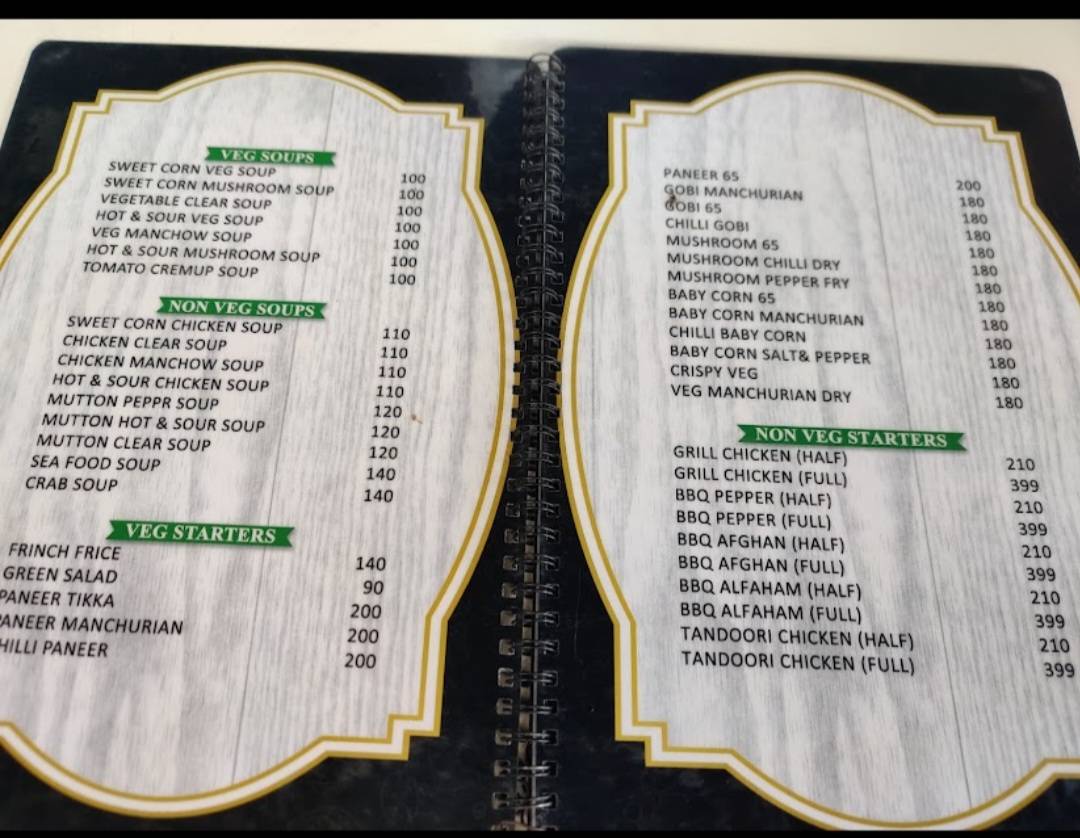 VEG SOUPS
SWEET CORN VEG SOUP 100
SWEET CORN MUSHROOM SOUP 100
VEGETABLE CLEAR SOUP 100
HOT & SOUR VEG SOUP 100
VEG MANCHOW SOUP 100
HOT & SOUR MUSHROOM SOUP 100
TOMATO CREMUP SOUP 100
NON VEG SOUPS
SWEET CORN CHICKEN SOUP 110
CHICKEN CLEAR SOUP 110
CHICKEN MANCHOW SOUP 110
HOT & SOUR CHICKEN SOUP 110
MUTTON PEPPR SOUP 120
MUTTON HOT & SOUR SOUP 120
MUTTON CLEAR SOUP 120
SEA FOOD SOUP 140
CRAB SOUP 140
VEG STARTERS
FRINCH FRICE 140
GREEN SALAD 90
PANEER TIKKA 200
PANEER MANCHURIAN 200
HILLI PANEER 200
PANEER 65 200
GOBI MANCHURIAN 180
GOBI 65 180
CHILLI GOBI 180
MUSHROOM 65 180
MUSHROOM CHILLI DRY 180
MUSHROOM PEPPER FRY 180
BABY CORN 65 180
BABY CORN MANCHURIAN 180
CHILLI BABY CORN 180
BABY CORN SALT& PEPPER 180
CRISPY VEG 180
VEG MANCHURIAN DRY 180
NON VEG STARTERS
GRILL CHICKEN (HALF) 210
GRILL CHICKEN (FULL) 399
BBQ PEPPER (HALF) 210
BBQ PEPPER (FULL) 399
BBQ AFGHAN (HALF) 210
BBQ AFGHAN (FULL) 399
BBQ ALFAHAM (HALF) 210
BBQ ALFAHAM (FULL) 399
TANDOORI CHICKEN (HALF) 210
TANDOORI CHICKEN (FULL) 399